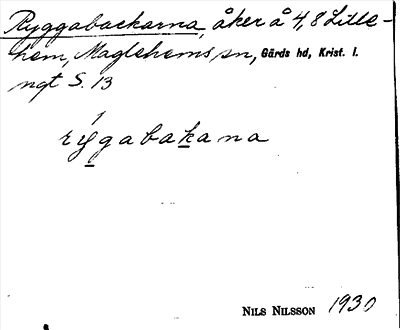 Ryggabackarna, åker å 4, 8 Lille-
hem, Maglehems sn, Gärds hd, Krist. l.
ngt S. 13
rýgabakana
NILS NILSSON 1930